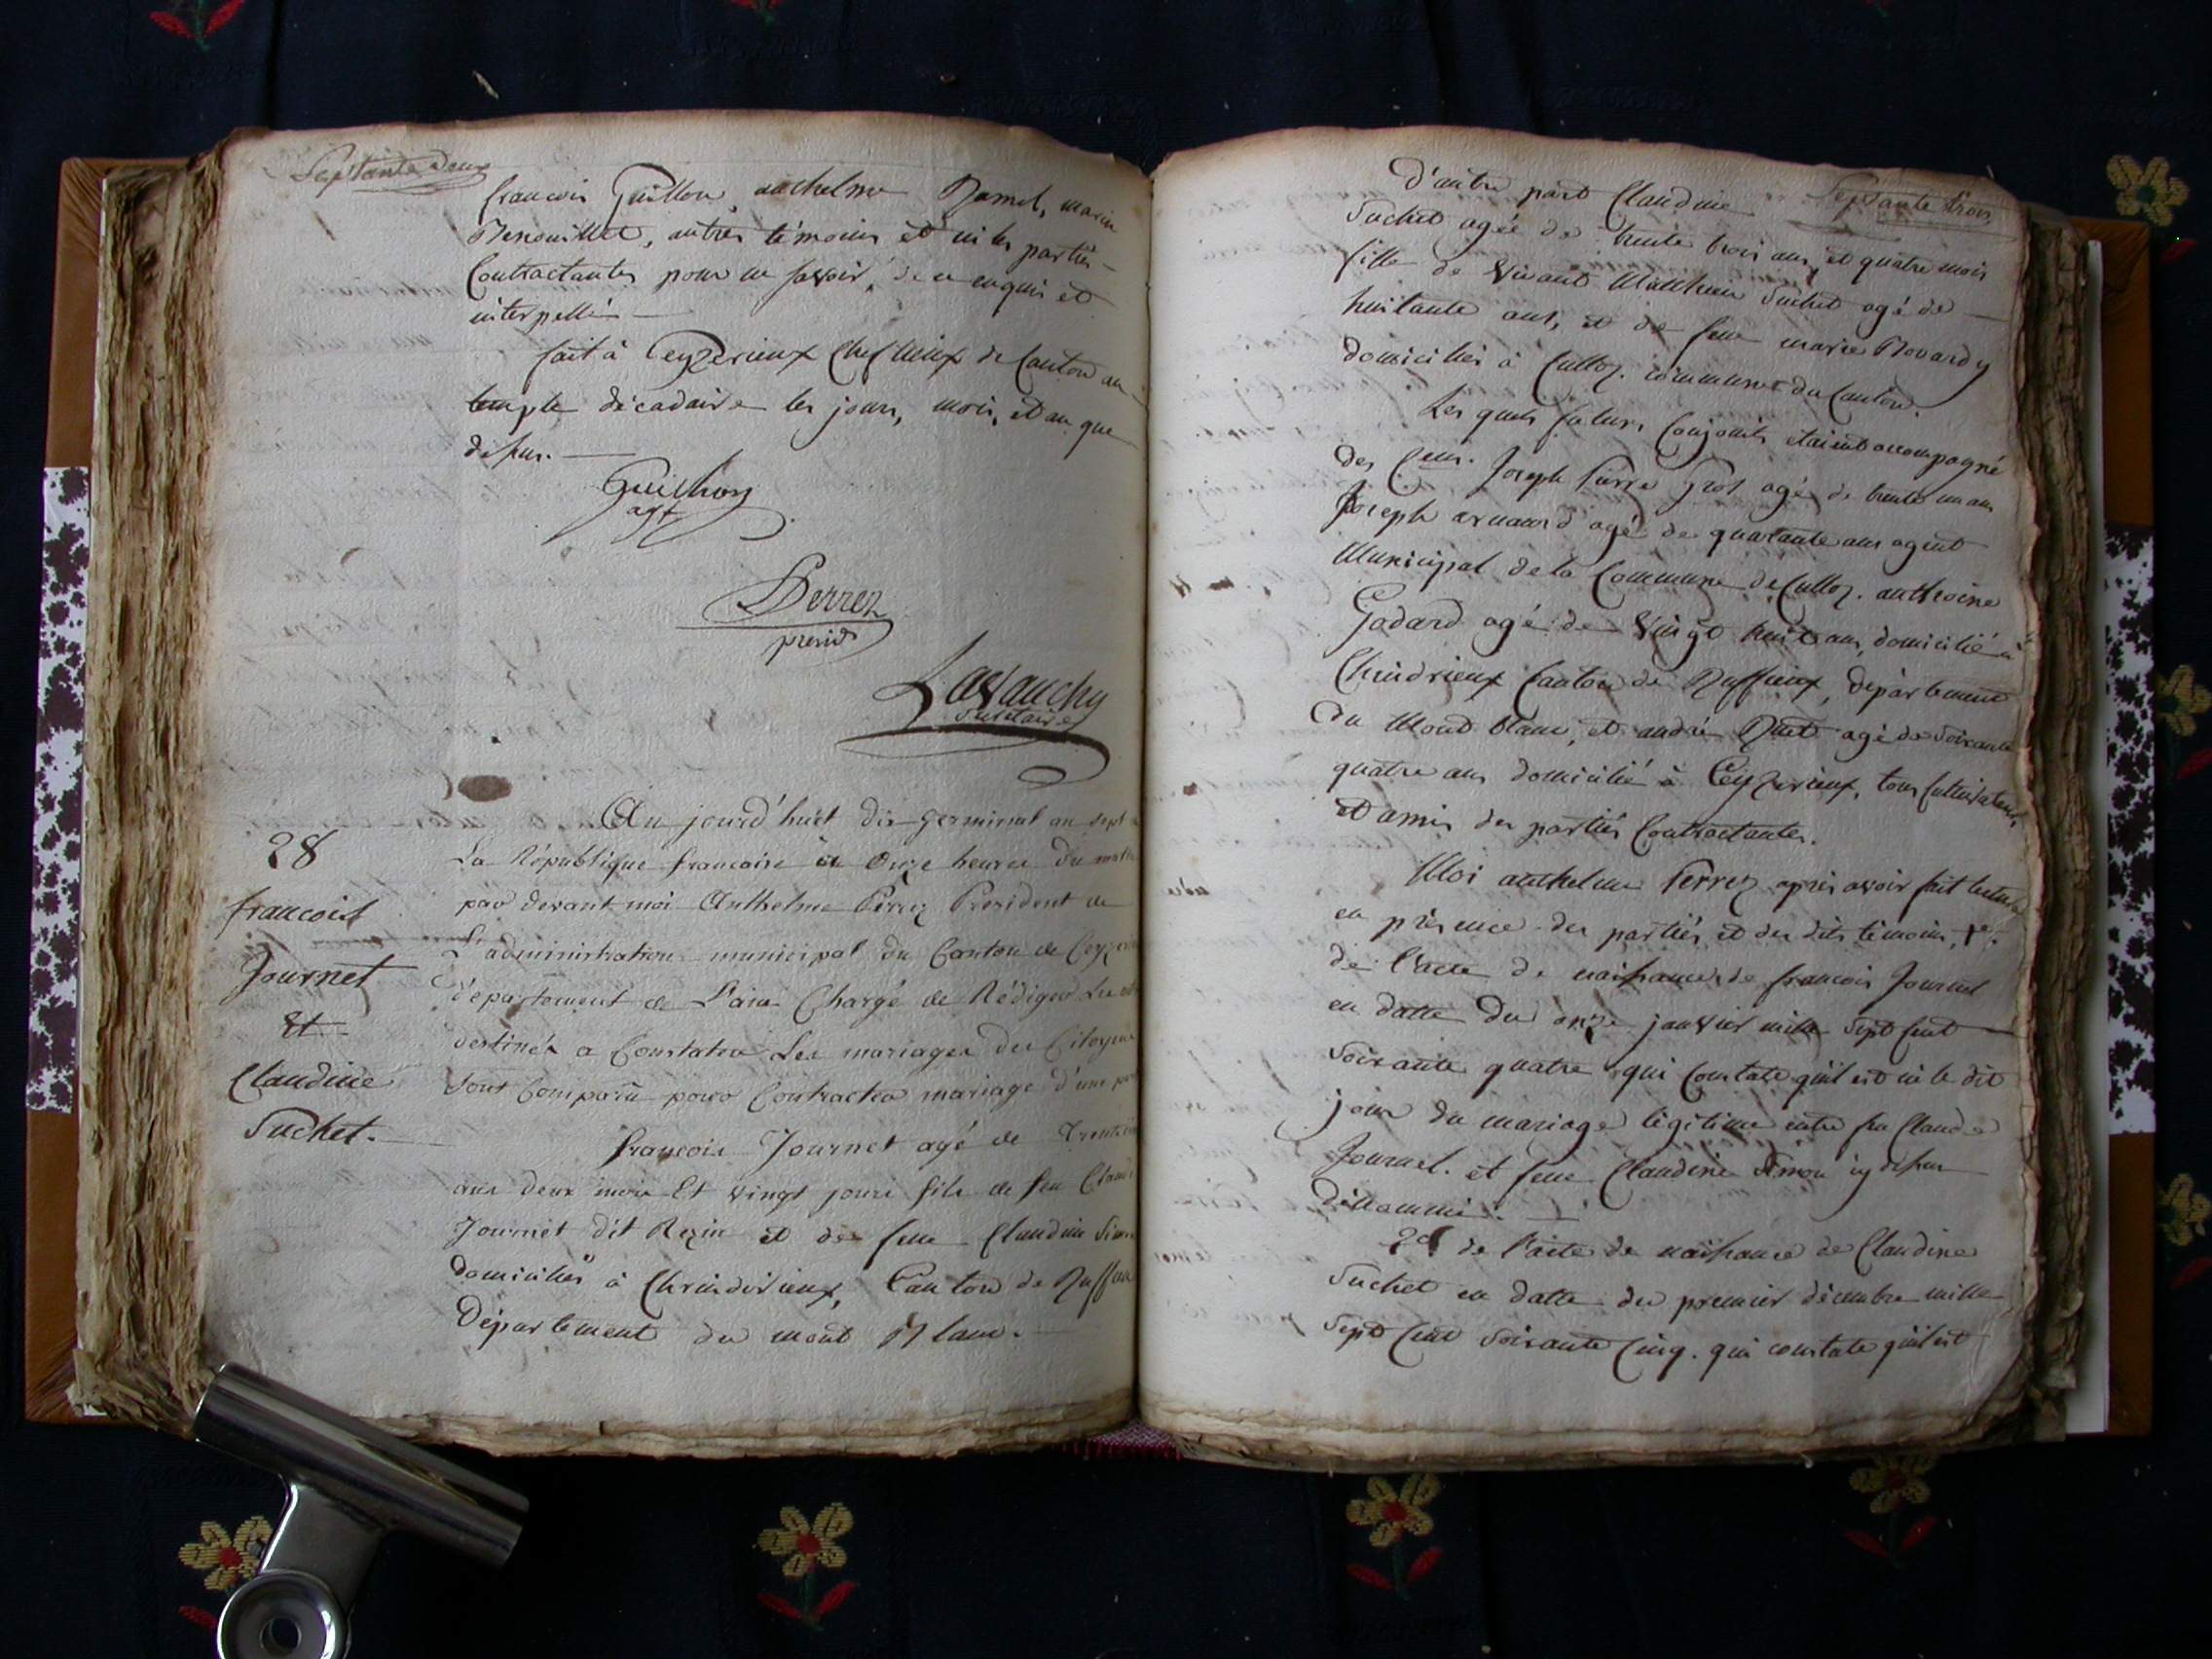 Septante deux
francois Guillon, anthelme marin
autres témoins et ni les parties
Contractantes pour ne savoir, de ce enquis et
interpellés
fait à Ceyzerieux Chef lieux de Canton au
temple décadaire les jours, mois, et an que
dessus.
Guilhon
agt
Perrez
presidt
Lavauchy
secretaire
28
francoist
Journet
Et
Claudine
Suchet.
Au jourd'huit dix germinal an sept
La République francaise à Onze heures du matin
par devant moi Anthelme Perrez President de
L'administration municipal du Canton de
département de L'ain Chargé de Rédiger Les
destinés a Constater Les mariages des Citoyens
sont Comparu pour Contracter mariage d'une part
françois Journet agé de
ans deux mois Et vingt jours fils de feu
Journet dit Rezin et de feue Claudine
domiciliés à Chrindrieux, Canton de
Département du mont Blanc.
Septante trois
D'autre part Claudine
Suchet agée de trente trois ans, et quatre mois
fille de vivant Matthieu Suchet agé de
huitante ans, et de feue marie Bovardy
domiciliés à Culloz. communes du Canton.
Les quels futurs Conjoints étaient accompagné
des Cens. Joseph Pierre Gros agé de trente un ans
Joseph arnaud agé de quarante ans agent
Municipal de la Commune de Culloz. anthoine
Godard agé de vingt huit ans, domicilié à
Chindrieux Canton de Ruffieux, département
du Mont blanc, et andré agé de soixante
quatre ans domicilié à Ceyzerieux, tous cultivateurs
et amis des partiés Contractantes.
Moi anthelme Perrez après avoir fait lecture
en présence des partiés et des dits témoins, 1e.
de l'acte de naissance de francois Journet
en datte du onze janvier mille sept cent
soixante quatre qui constate qu'il est né le dit
jour du mariage légitime entre feu Claude
Journet. et feue Claudine Simon cy dessus
dénommé.
2e de l'acte de naissance de Claudine
Suchet en datte du premier décembre mille
sept cent soixante cinq. qui constate quil est